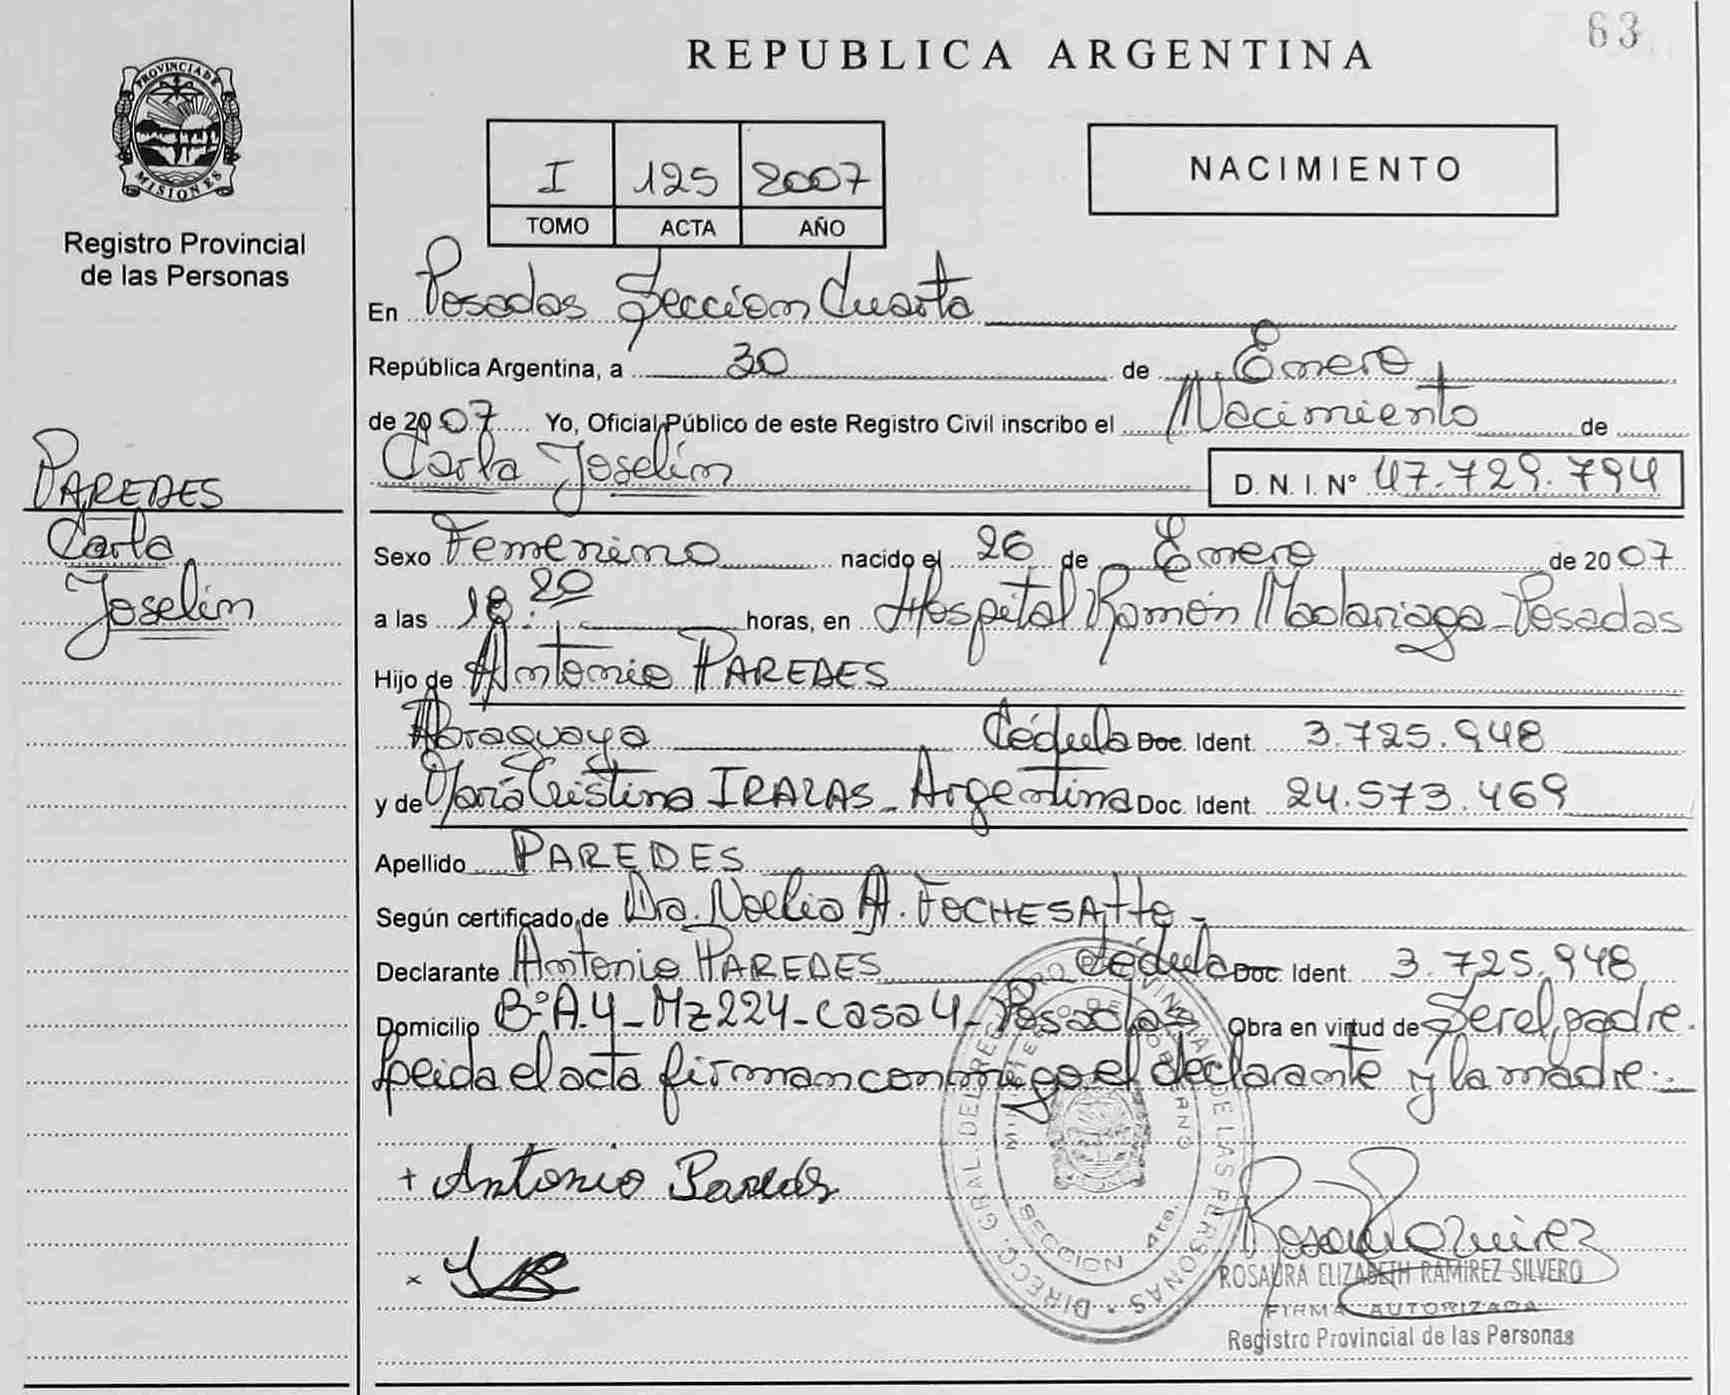 63
REPUBLICA ARGENTINA
PROVINCIA DE
MISIONES
Registro Provincial
de las Personas
I 125 2007
TOMO ACTA AÑO
NACIMIENTO
En Posadas Sección Cuarta
República Argentina, a 30 de Enero
de 2007 Yo, Oficial Público de este Registro Civil inscribo el Nacimiento de
Carla Joselin D. N. I. N° 47.729.794
PAREDES
Carla
Joselin
Sexo Femenino nacido el 26 de Enero de 2007
a las 18:20 horas, en Hospital Ramón Madariaga - Posadas
Hijo de Antonio PAREDES
Paraguaya Cédula Doc. Ident. 3.725.948
y de María Cristina IRALAS - Argentina Doc. Ident. 24.573.469
Apellido PAREDES
Según certificado de Dra. Noelia A. FOCHESATTO -
Declarante Antonio PAREDES Cédula Doc. Ident. 3.725.948
Domicilio B° A.4 - Mz 224 - casa 4 - Posadas Obra en virtud de Ser el padre.
Leida el acta firman conmigo el declarante y la madre.-
+ Antonio Paredes
x
DIRECC. GRAL. DEL REGISTRO PROVINCIAL DE LAS PERSONAS
MINISTERIO DE GOBIERNO
SECCION 4ta.
Rosaura Ramirez
ROSAURA ELIZABETH RAMIREZ SILVERO
FIRMA AUTORIZADA
Registro Provincial de las Personas